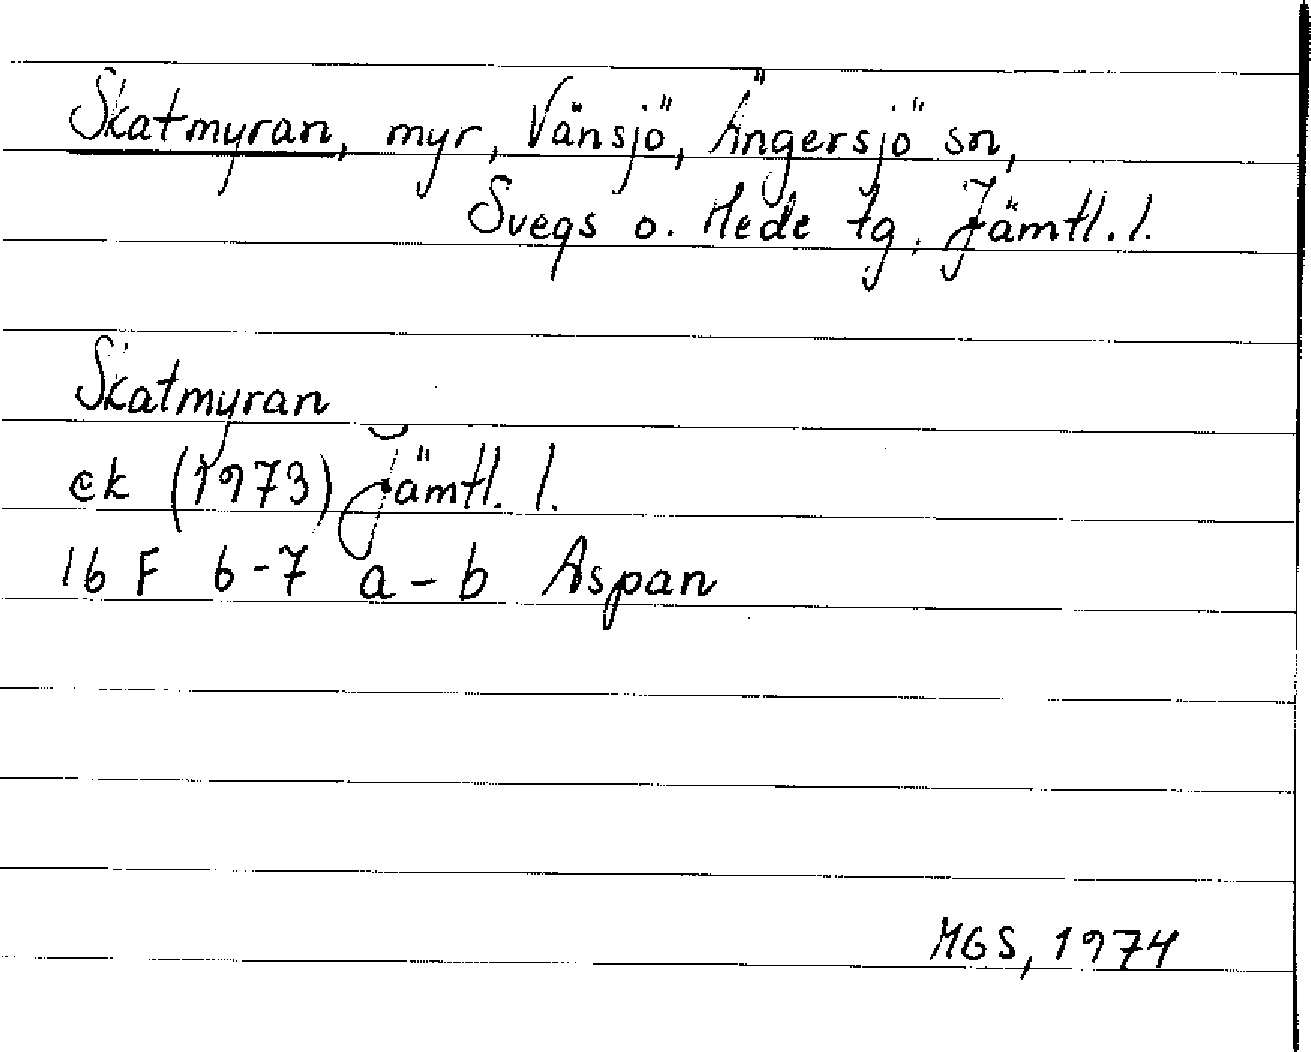 Skatmyran, myr, Vänsjö, Ängersjö sn,
Svegs o. Hede tg. Jämtl. l.
Skatmyran
ek (1973) Jämtl. l.
16 F 6-7 a-b Aspan
MGS, 1974